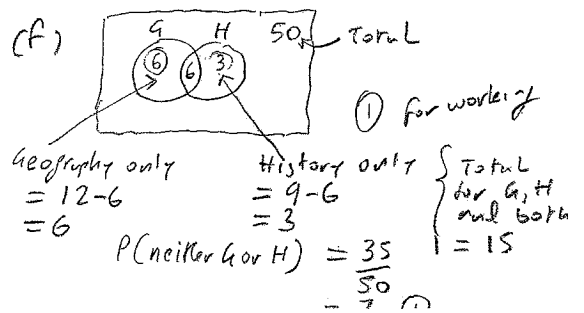 (f)
G H 50 Total
6 6 3
① for working
Geography only
= 12-6
= 6
History only
= 9-6
= 3
Total
for G, H
and both
= 15
P(neither G or H) = 35
50
①